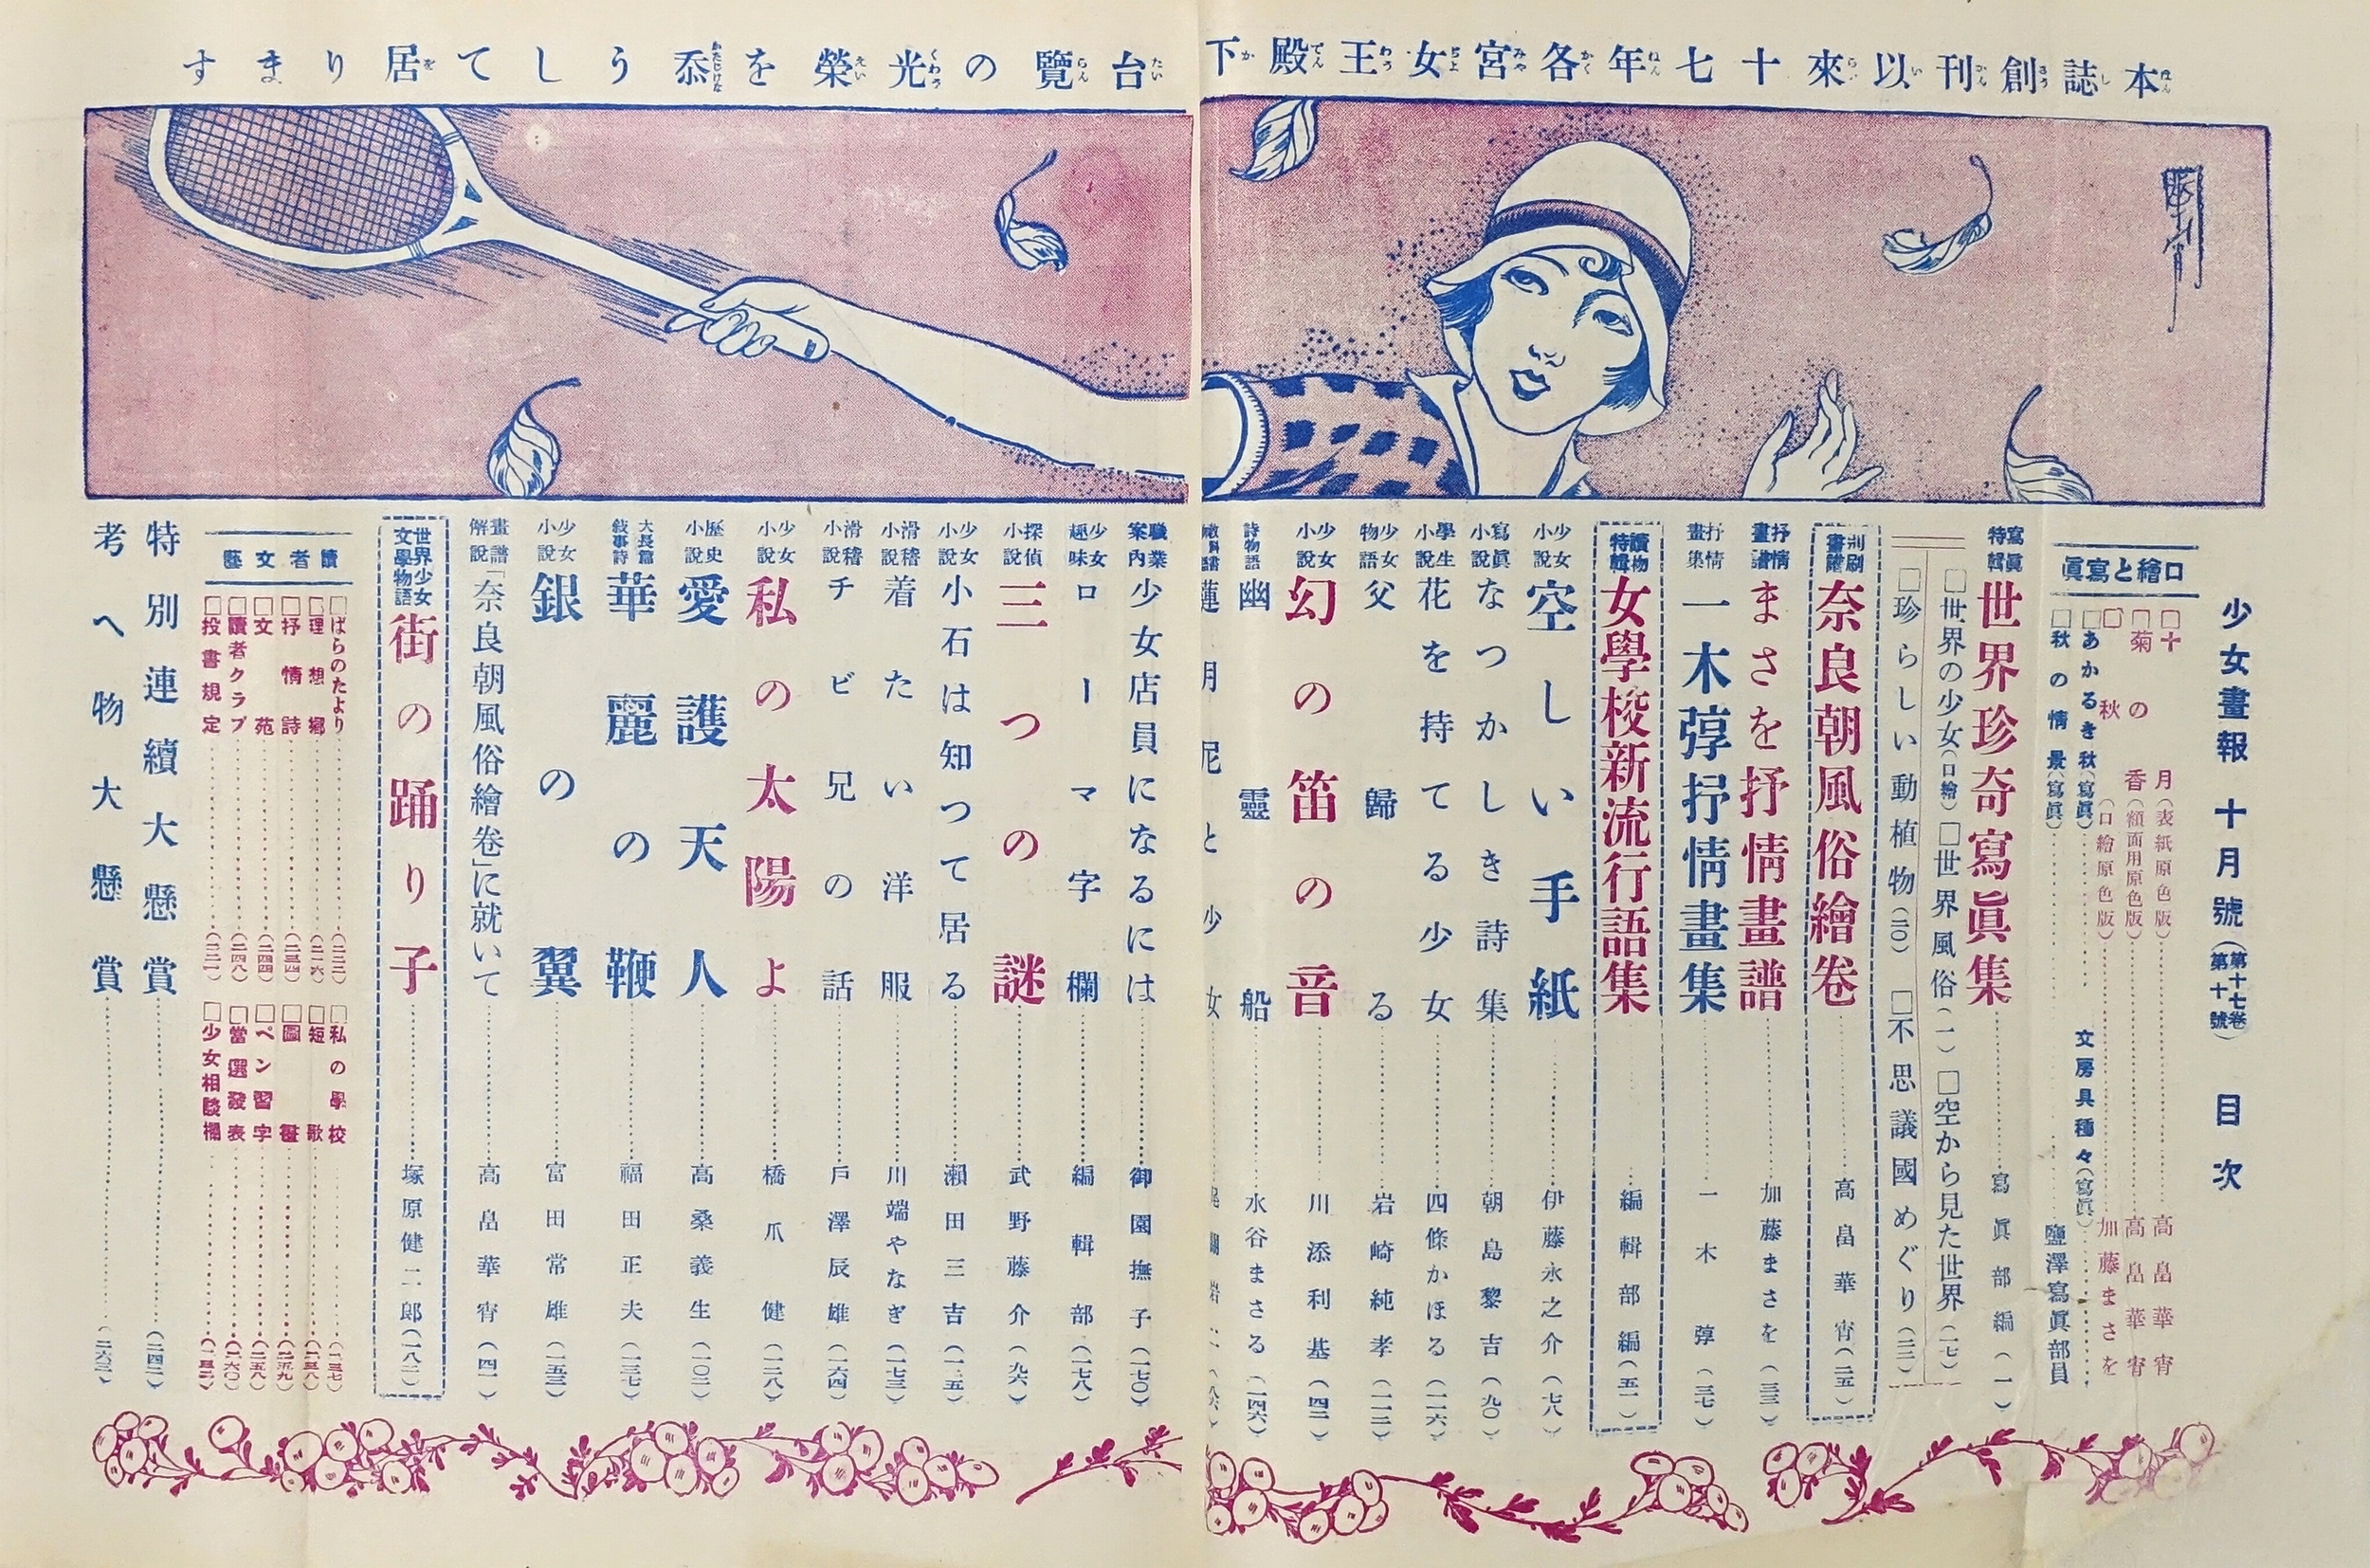 本誌創刊以來十七年各宮女王殿下台覽の光榮を忝うして居ります
少女畫報 十月號(第十七卷第十號) 目次
口繪と寫眞
□十月(表紙原色版)……高畠華宵
□菊の香(額面用原色版)……高畠華宵
□秋(口繪原色版)……加藤まさを
□あかるき秋(寫眞)……文房具種々(寫眞)……
□秋の情景(寫眞)……鹽澤寫眞部員
寫眞特輯 世界珍奇寫眞集……寫眞部編(一)
□世界の少女(口繪)□世界風俗(一)□空から見た世界(一七)
□珍らしい動植物(二〇)□不思議國めぐり(二三)
別刷畫譜 奈良朝風俗繪卷……高畠華宵(二五)
抒情畫譜 まさを抒情畫譜……加藤まさを(三三)
抒情畫集 一木弴抒情畫集……一木弴(三七)
讀物特輯 女學校新流行語集……編輯部編(五一)
少女小説 空しい手紙……伊藤永之介(七八)
寫眞小説 なつかしき詩集……朝島黎吉(九〇)
學生小説 花を持てる少女……四條かほる(一二六)
少女物語 父歸る……岩崎純孝(一一二)
少女小説 幻の笛の音……川添利基(四二)
詩物語 幽靈船……水谷まさる(一四六)
蓮月尼と少女……
職業案内 少女店員になるには……御園撫子(一七〇)
少女趣味 ローマ字欄……編輯部(一七八)
探偵小説 三つの謎……武野藤介(九六)
少女小説 小石は知つて居る……瀨田三吉(一一五)
滑稽小説 着たい洋服……川端やなぎ(一七三)
滑稽小説 チビ兄の話……戸澤辰雄(一六四)
少女小説 私の太陽よ……橋爪健(一二八)
歷史小説 愛護天人……高桑義生(一〇二)
大長篇敍事詩 華麗の鞭……福田正夫(一三七)
少女小説 銀の翼……富田常雄(一五三)
畫譜解説 奈良朝風俗繪卷」に就いて……高畠華宵(四一)
世界少女文學物語 街の踊り子……塚原健二郎(一八二)
讀者文藝
□ばらのたより……(二三二)
□理想鄕……(二一六)
□抒情詩……(二三四)
□文苑……(二四四)
□讀者クラブ……(二四八)
□投書規定……
□私の學校……
□短歌……
□圖畫……
□ペン習字……(二五八)
□當選發表……(二六〇)
□少女相談欄……
特別連續大懸賞……(二四二)
考へ物大懸賞……(二六三)